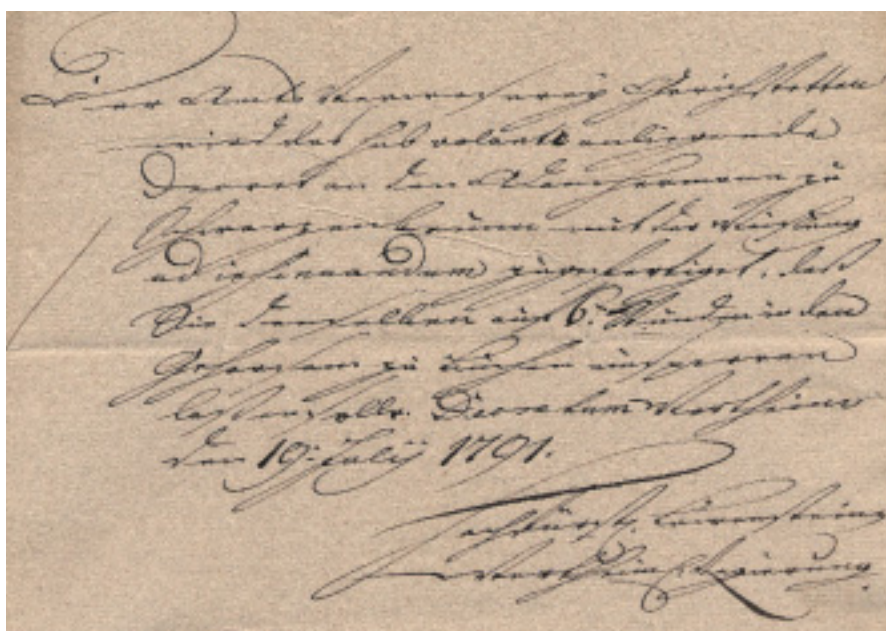 Der Amts Verweserey Gerichstetten
wird das sub volante anliegende
Decret an den zu
Schwarzenbrunn mit der Weisung
ad insinuandum zugefertiget, daß
Sie denselben auf 6. Stunden in den
Gehorsam zu einsperren
lassen solle. Decretum Wertheim
den 19. July 1791.
Hochfürstl. Löwenstein
Wertheim. Regierung.